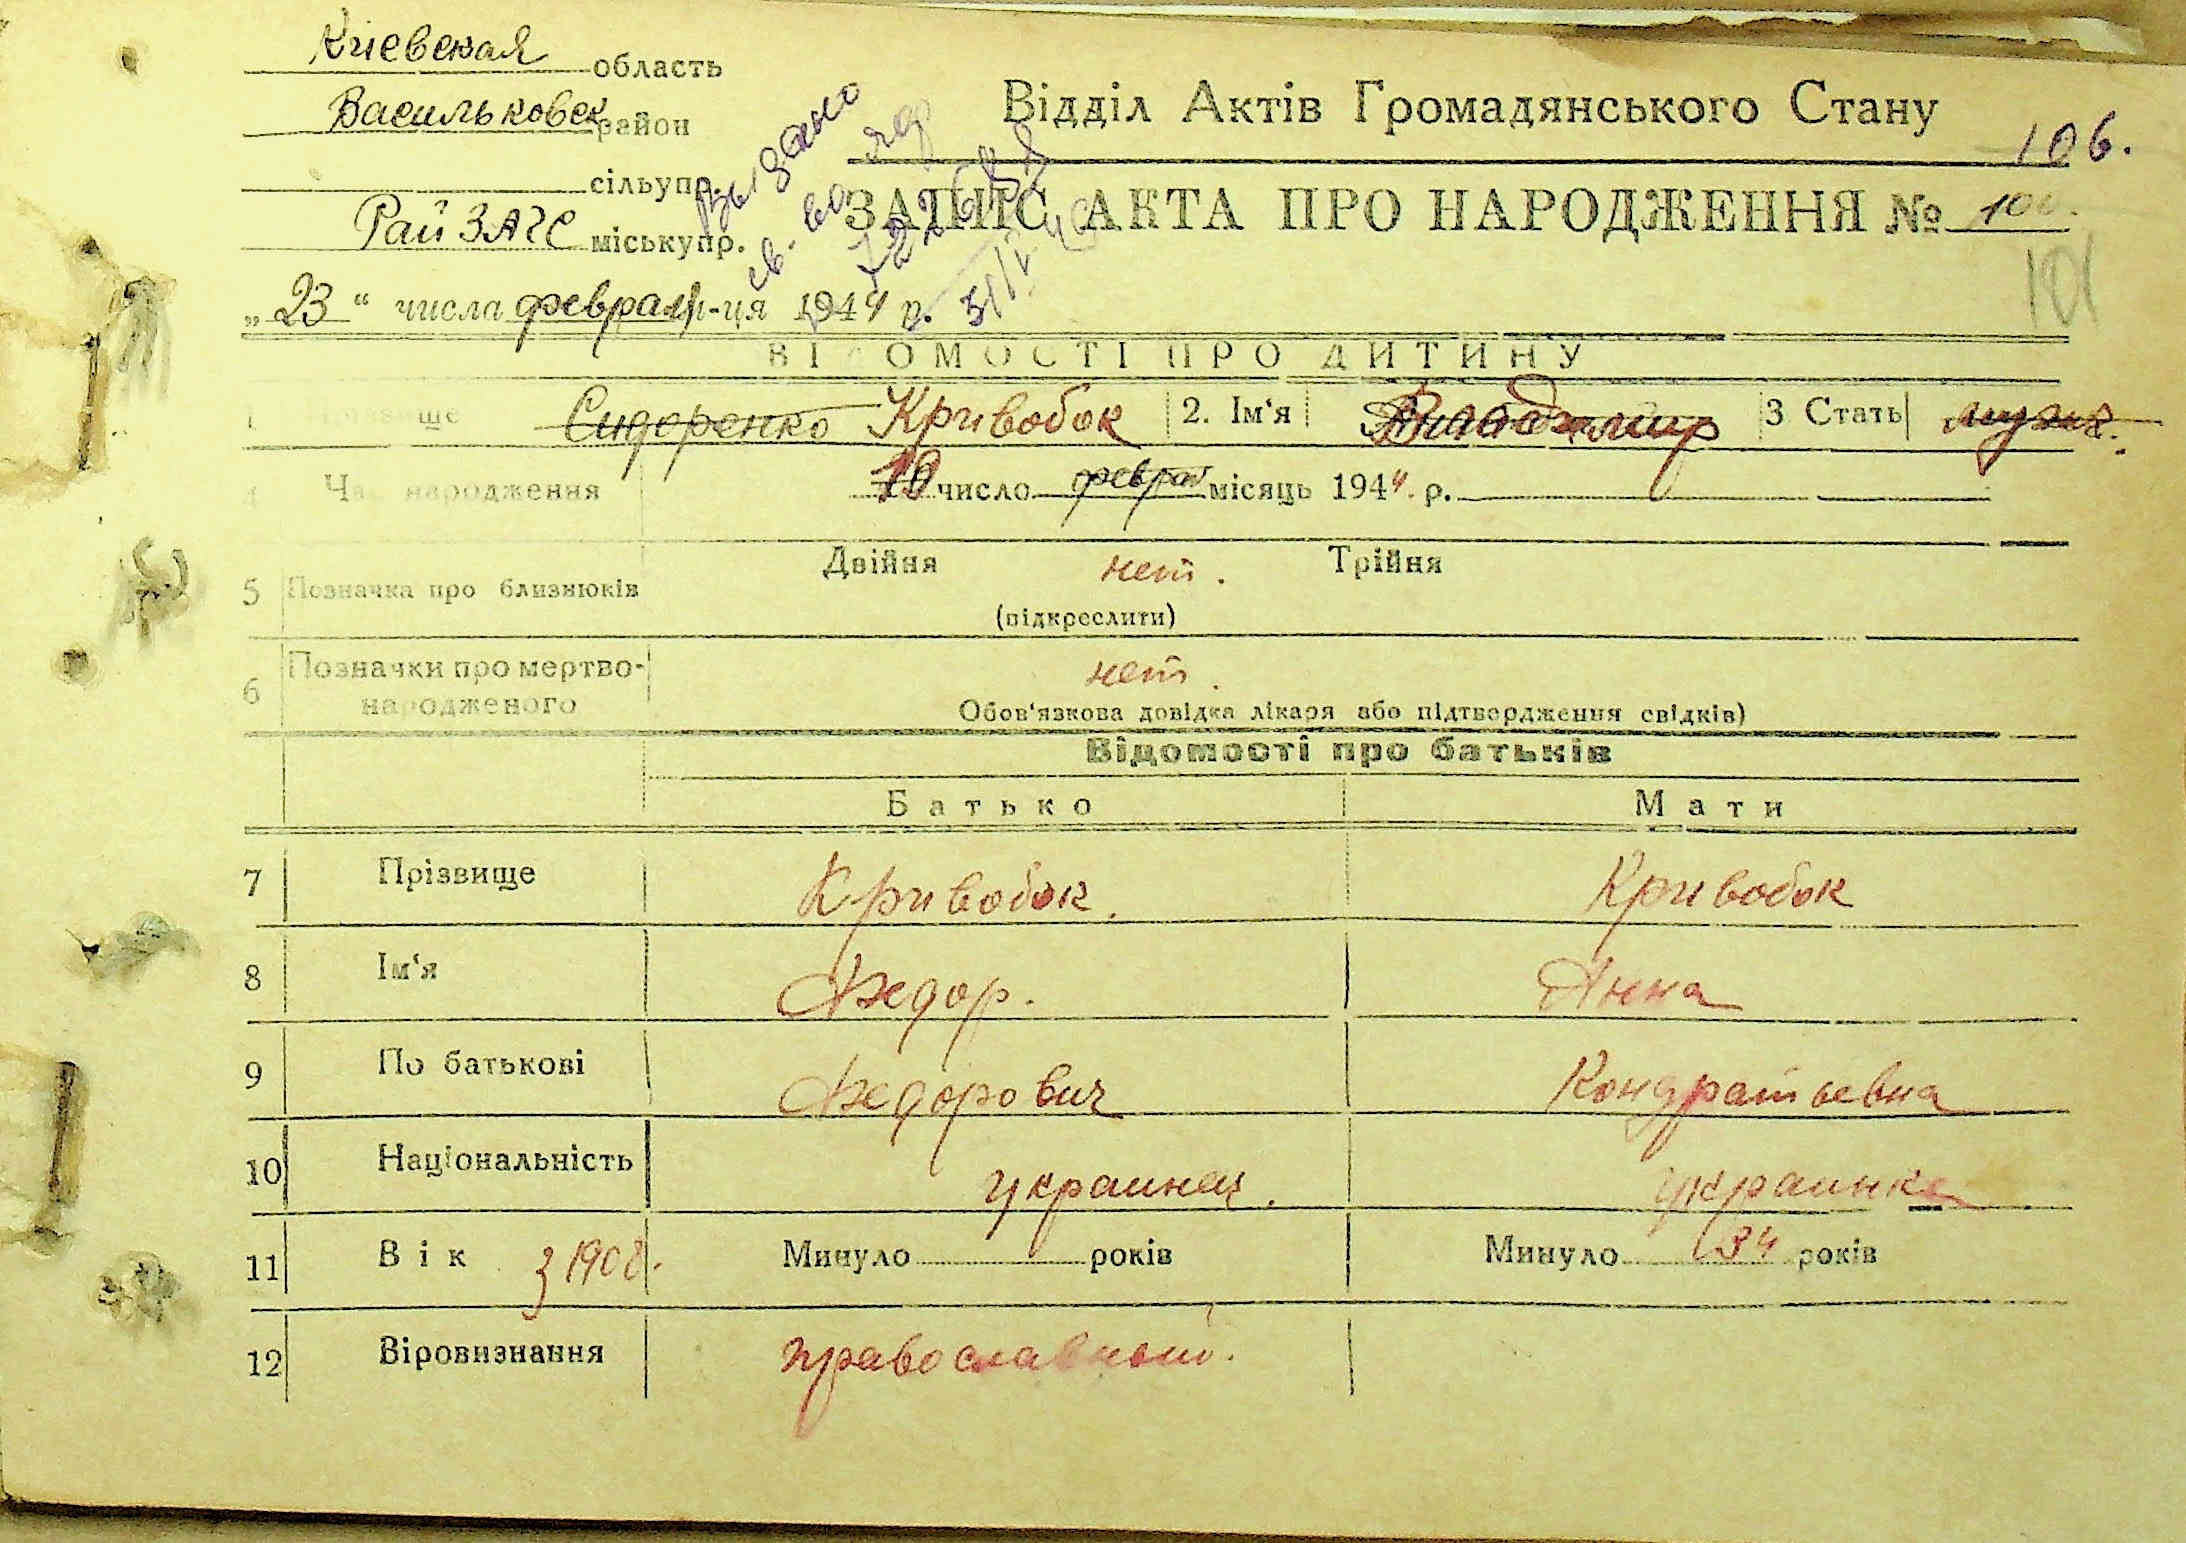 Киевская область
Васильковск район
сільупр.
Рай ЗАГС міськупр.
„ 23 “ числа февраля м-ця 1944 р.
Выдано
св. во
Відділ Актів Громадянського Стану
106.
ЗАПИС АКТА ПРО НАРОДЖЕННЯ №
101
ВІДОМОСТІ ПРО ДИТИНУ
1 Прізвище Сидоренко Кривобок 2. Ім‘я Владимир 3 Стать мужс.
4 Час народження 10 число феврал місяць 1944. р.
Двійня нет. Трійня
5 Позначка про близнюків
(підкреслити)
6 Позначки про мертво-народженого нет.
Обов‘язкова довідка лікаря або підтвердження свідків)
Відомості про батьків
Батько Мати
7 Прізвище Кривобок. Кривобок
8 Ім‘я Федор. Анна
9 По батькові Федорович Кондратьевна
10 Національність украинец. украинка
11 Вік з 1908. Минуло років Минуло 34 років
12 Віровизнання православный.